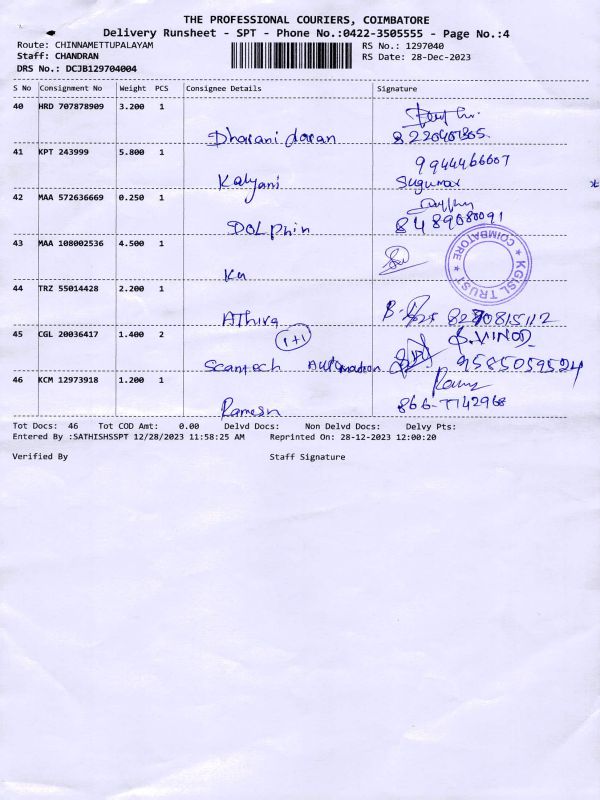 THE PROFESSIONAL COURIERS, COIMBATORE
Delivery Runsheet - SPT - Phone No.:0422-3505555 - Page No.:4
Route: CHINNAMETTUPALAYAM
RS No.: 1297040
Staff: CHANDRAN
RS Date: 28-Dec-2023
DRS No.: DCJB129704004
S No Consignment No Weight PCS Consignee Details Signature
40 HRD 707878909 3.200 1
Dharani daran 8220407805
41 KPT 243999 5.800 1
9944466607
Kalyani Sugumar
42 MAA 572636669 0.250 1
DOLPhin 8489080091
43 MAA 108002536 4.500 1
Ku
KGISL TRUST * COIMBATORE *
44 TRZ 55014428 2.200 1
Athira 8270815112
45 CGL 20036417 1.400 2
1+1 S.VINOD
Scantech Automation 9585059524
46 KCM 12973918 1.200 1
Ramesh 866-7742968
Tot Docs: 46 Tot COD Amt: 0.00 Delvd Docs: Non Delvd Docs: Delvy Pts:
Entered By :SATHISHSSPT 12/28/2023 11:58:25 AM Reprinted On: 28-12-2023 12:00:20
Verified By Staff Signature